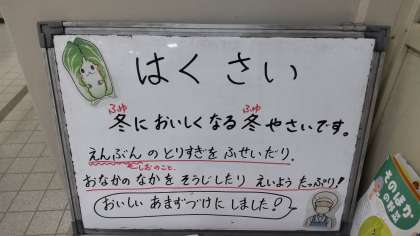 はくさい
ふゆ ふゆ
冬においしくなる冬やさいです。
えんぶんのとりすぎをふせいだり、
しおのこと
おなかのなかをそうじしたりえいようたっぷり!
おいしいあまずづけにしました!
そのほか
の野菜